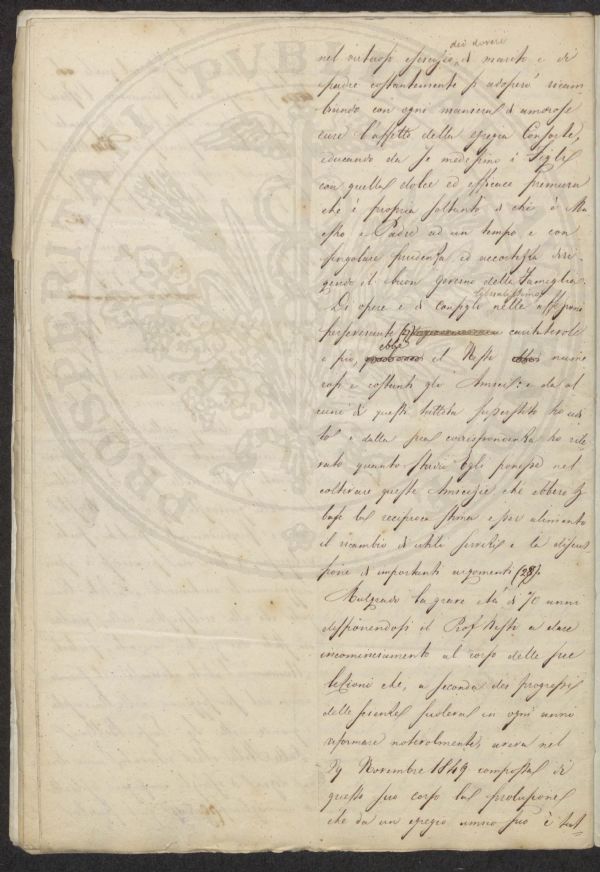 dei doveri
nel virtuoso esercizio di marito e di
padre costantemente si adoperò ricam
biando con ogni maniera di amorose
cure l'affetto della egregia Consorte,
educando da se medesimo i Figli
con quella dolce ed efficace premura
che è propria soltanto di chi è Ma
estro e Padre ad un tempo e con
singolare prudenza ed accortezza diri-
gendo il buon governo della Famiglia.
Di opere e di consiglio nelle affezioni
perseverante caritatevole
e pio, ebbe il Neste nume
rosi e costanti gli Amici: e da al
cuni di questi tuttora superstiti ho udi
to e dalla sua corrispondenza ho rile
vato quanto studio Egli ponesse nel
coltivare queste Amicizie che ebbero p
base la reciproca stima e per alimento
il ricambio di utili servizi e la discus
sione di importanti argomenti (28).
Malgrado la grave età di 70 anni
disponendosi il Prof Neste a dare
incominciamento al corso delle sue
lezioni che, a seconda dei progressi
delle scienze soleva in ogni anno
riformare notevolmente, aveva nel
29 Novembre 1849 composta di
questo suo corso la prolusione
che da un egregio amico suo è stat
PROSPERITATI PUB